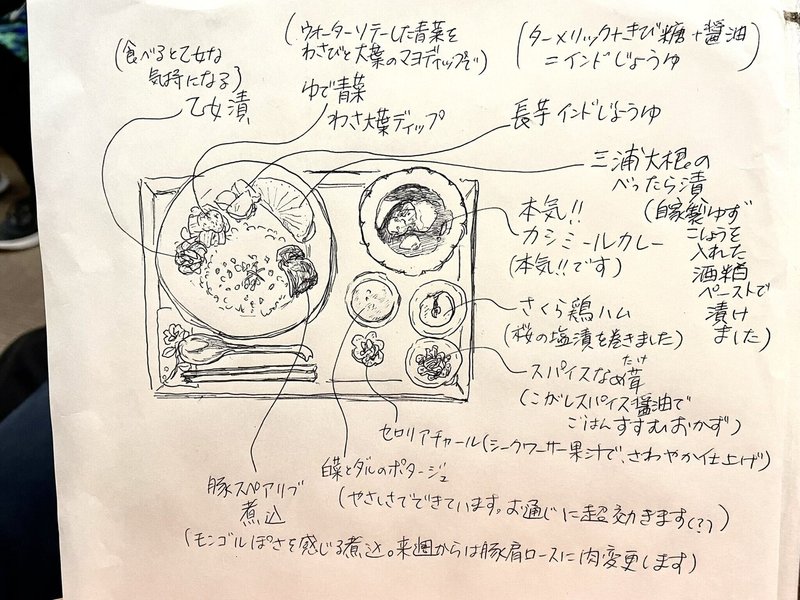 (食べると乙女な
気持になる)
乙女漬
(ウォーターソテーした青菜を
わさびと大葉のマヨディップで)
ゆで青菜
わさ大葉ディップ
(ターメリック+きび糖+醤油)
=インドじょうゆ
長芋インドじょうゆ
三浦大根の
べったら漬
(自家製ゆず
こしょうを
入れた
酒粕
ペーストで
漬け
ました)
本気!!
カシミールカレー
(本気!!です)
さくら鶏ハム
(桜の塩漬を巻きました)
スパイスなめ茸
たけ
(こがしスパイス醤油で
ごはんすすむおかず)
セロリアチャール(シークワーサー果汁で、さわやか仕上げ)
白菜とダルのポタージュ
(やさしさでできています。お通じに超効きます(?))
豚スペアリブ
煮込
(モンゴルぽさを感じる煮込。来週からは豚肩ロースに肉変更します)